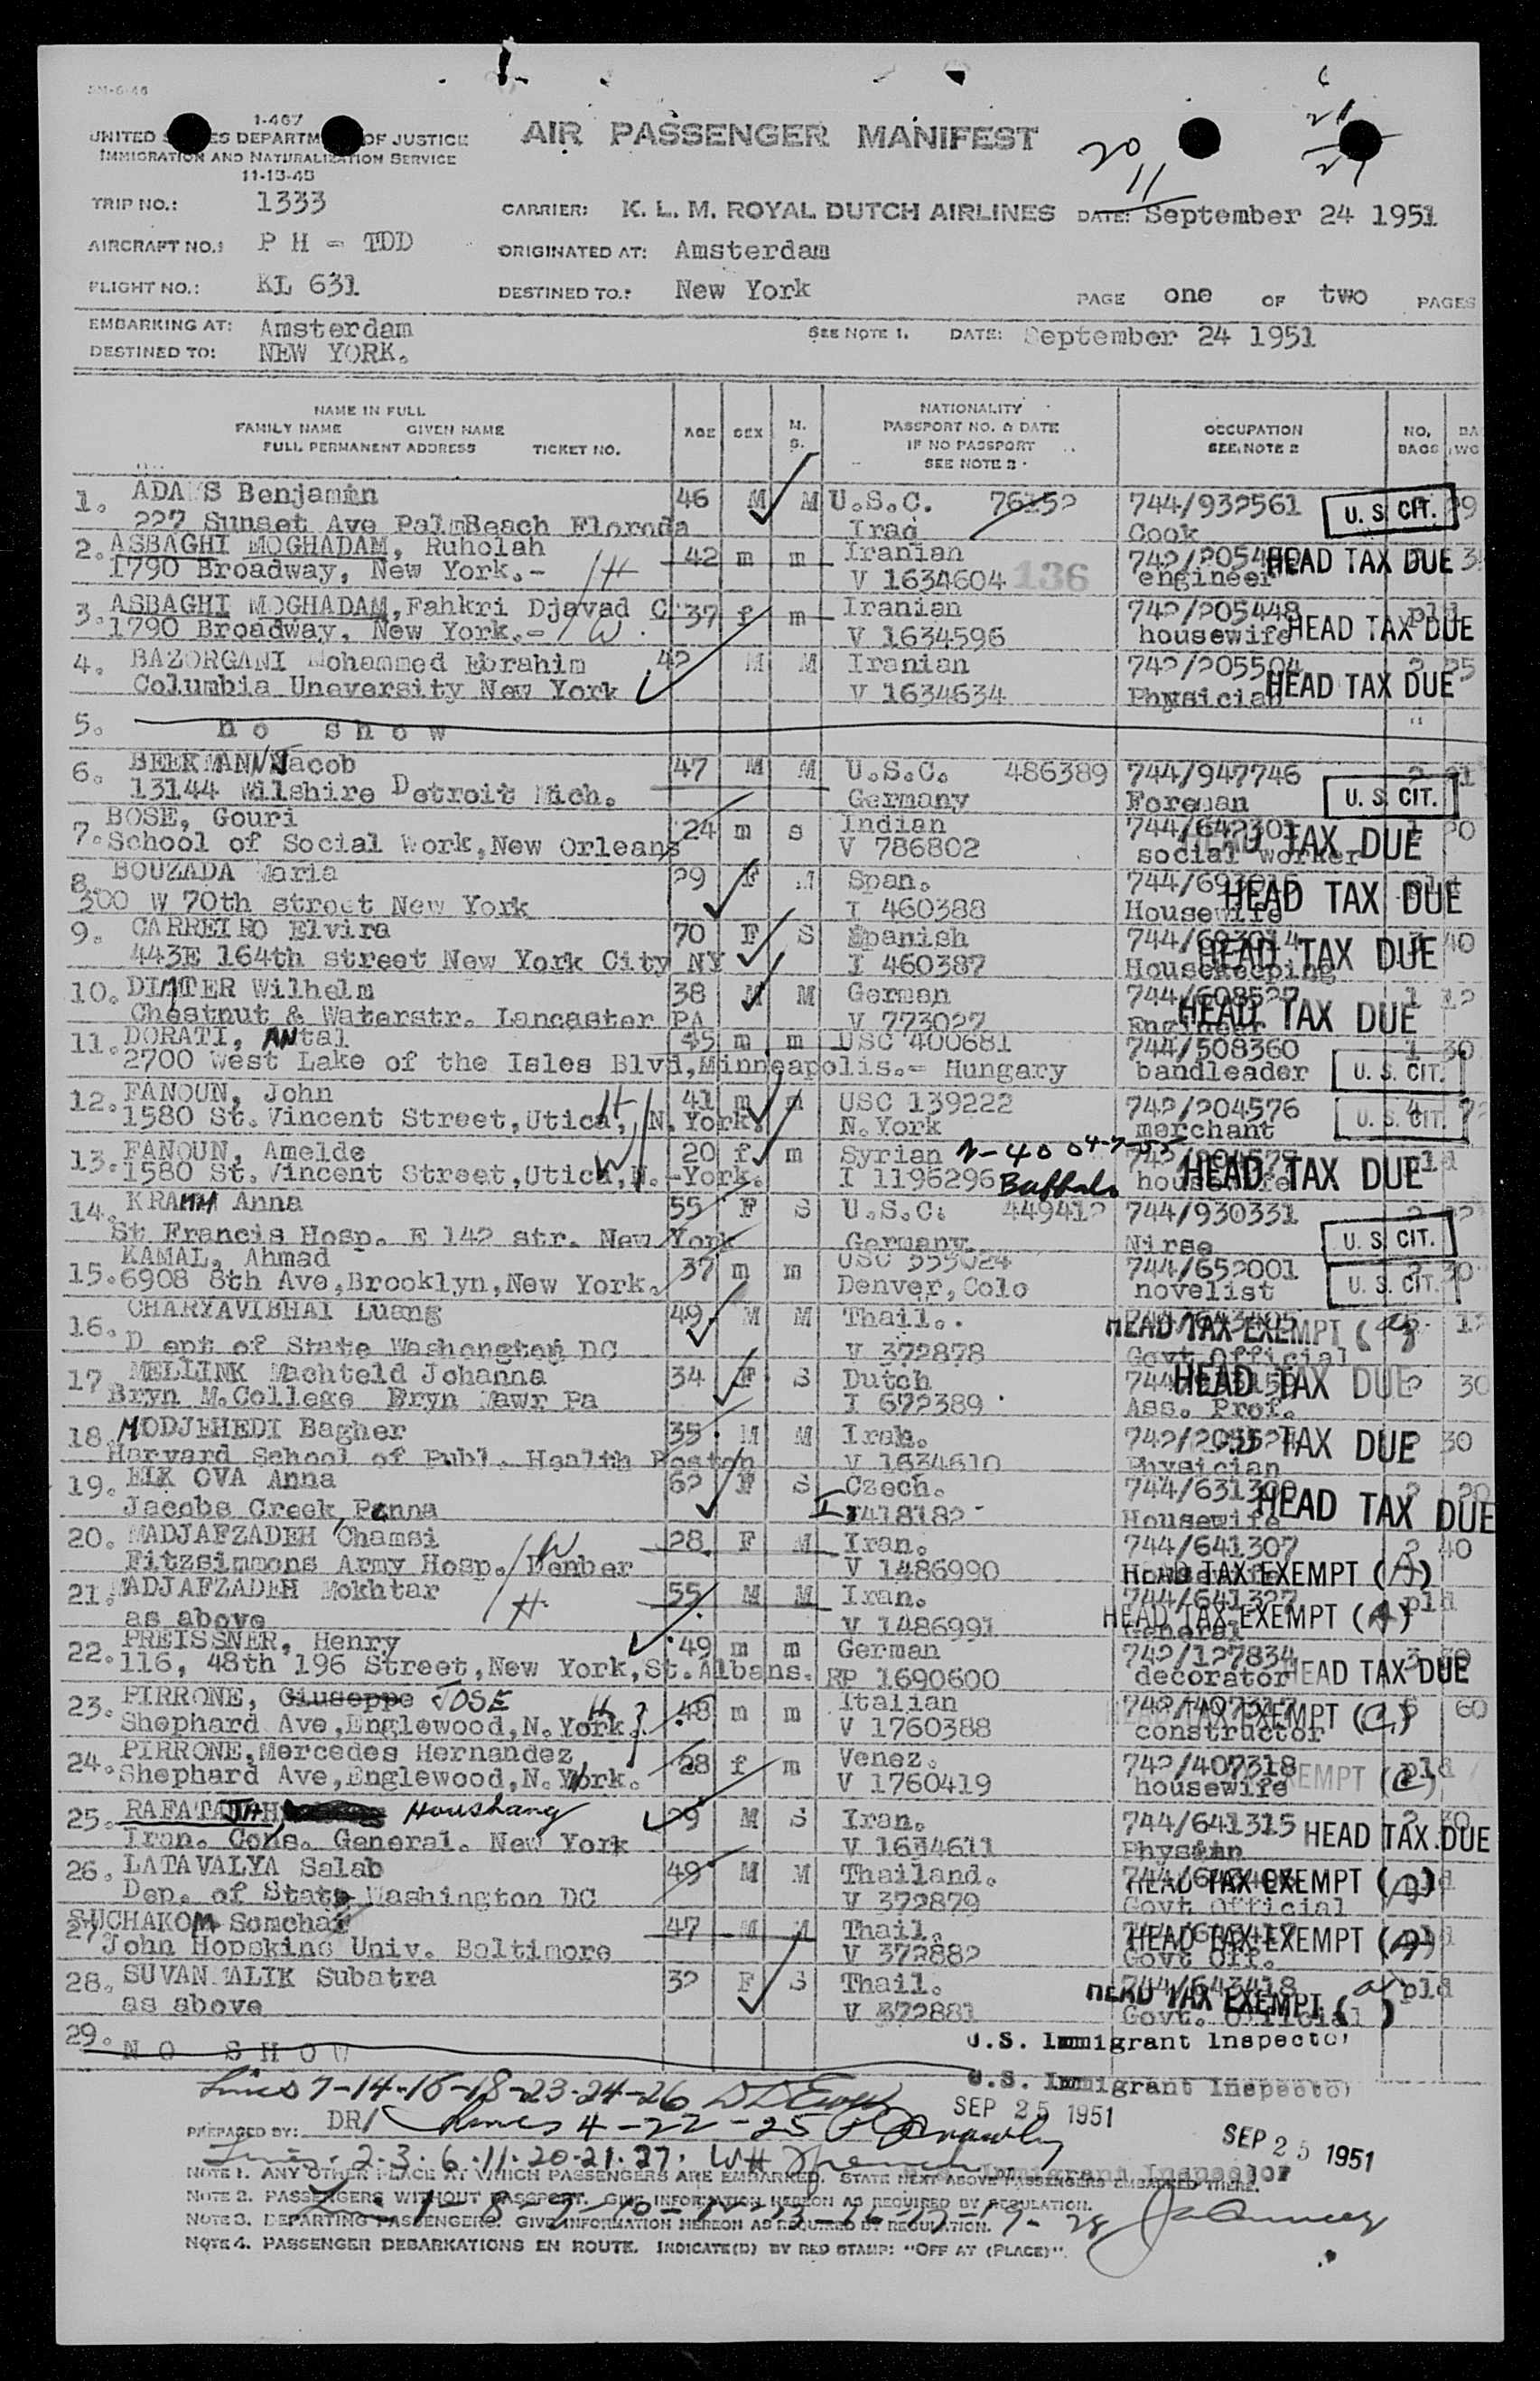 1-467
UNITED STATES DEPARTMENT OF JUSTICE
IMMIGRATION AND NATURALIZATION SERVICE
11-13-45
AIR PASSENGER MANIFEST
20
11
TRIP NO.: 1333
CARRIER: K. L. M. ROYAL DUTCH AIRLINES DATE: September 24 1951
AIRCRAFT NO.: P H - TDD
ORIGINATED AT: Amsterdam
FLIGHT NO.: KL 631
DESTINED TO: New York
PAGE one OF two PAGES
EMBARKING AT: Amsterdam
SEE NOTE 1. DATE: September 24 1951
DESTINED TO: NEW YORK.
NAME IN FULL
FAMILY NAME GIVEN NAME
FULL PERMANENT ADDRESS TICKET NO.
AGE SEX M. S.
NATIONALITY
PASSPORT NO. & DATE
IF NO PASSPORT
SEE NOTE 3
OCCUPATION
SEE NOTE 2
NO. BAGS
1. ADAMS Benjamin 46 M M U.S.C. 76152 744/932561 U.S. CIT.
227 Sunset Ave PalmBeach Floroda Iraq Cook
2. ASBAGHI MOGHADAM, Ruholah 42 m m Iranian HEAD TAX DUE
1790 Broadway, New York.- H V 1634604 136 engineer
3. ASBAGHI MOGHADAM, Fahkri Djavad C. 37 f m Iranian 742/205448 pld
1790 Broadway, New York.- W V 1634596 housewife HEAD TAX DUE
4. BAZORGANI Mohammed Ebrahim 42 M M Iranian 742/205504 2 25
Columbia Uneversity New York V 1634634 Physician HEAD TAX DUE
5. no show
6. BEEKMANN Jacob 47 M M U.S.C. 486389 744/947746
13144 Wilshire Detroit Mich. Germany Foreman U.S. CIT.
7. BOSE, Gouri 24 m s Indian 744/642301 1 20
School of Social Work,New Orleans V 786802 social worker TAX DUE
8. BOUZADA Maria 29 F M Span.
300 W 70th street New York I 460388 Housewife HEAD TAX DUE
9. CARREIRO Elvira 70 F S Spanish 40
443E 164th street New York City NY I 460387 Housekeeping HEAD TAX DUE
10. DIMTER Wilhelm 38 M M German 744/608527 1 12
Chestnut & Waterstr. Lancaster PA V 773027 Engineer HEAD TAX DUE
11. DORATI, ANtal 45 m m USC 400681 744/508360 1 30
2700 West Lake of the Isles Blvd,Minneapolis.- Hungary bandleader U.S. CIT.
12. FANOUN, John 41 m m USC 139222 742/204576
1580 St. Vincent Street,Utica, N. York. H N.York merchant U.S. CIT.
13. FANOUN, Amelde 20 f m Syrian pld
1580 St. Vincent Street,Utica,N.-York. W I 1196296 Buffalo housewife HEAD TAX DUE
14. KRAMM Anna 55 F S U.S.C. 449412 744/930331
St Francis Hosp. E 142 str. New York Germany Nirse U.S. CIT.
15. KAMAL, Ahmad 37 m m USC 355024 744/652001 30
6908 8th Ave,Brooklyn,New York. Denver,Colo novelist U.S. CIT.
16. CHARYAVIBHAI Luang 49 M M Thail.
D ept of State Washongton DC V 372878 Govt Official HEAD TAX EXEMPT
17 MELLINK Machteld Johanna 34 F S Dutch 30
Bryn M.College Bryn Mawr Pa I 672389 Ass. Prof. HEAD TAX DUE
18. MODJEHEDI Bagher 35 M M Iran. 30
Harvard School of Publ. Health Boston V 1634610 Physician TAX DUE
19. Anna 62 F S Czech. 20
Jacobs Creek, Penna I 1418182 Housewife HEAD TAX DUE
20. MADJAFZADEH Chamsi 28 F M Iran. 744/641307 2 40
Fitzsimmons Army Hosp. Denber W V 1486990 HEAD TAX EXEMPT (A)
21. MADJAFZADEH Mokhtar 55 M M Iran. 744/641327 pld
as above H V 1486991 General HEAD TAX EXEMPT (A)
22. PREISSNER, Henry 49 m m German 742/127834
116, 48th 196 Street,New York,St.Albans. RP 1690600 decorator HEAD TAX DUE
23. PIRRONE, Giuseppe JOSE 48 m m Italian 742/407317 60
Shephard Ave,Englewood,N.York. H V 1760388 constructor TAX EXEMPT (C)
24. PIRRONE,Mercedes Hernandez 28 f m Venez. 742/407318 pld
Shephard Ave,Englewood,N.York. W V 1760419 housewife EXEMPT (C)
25. RAFATJAH, Houshang 29 M S Iran. 744/641315 2 30
Iran. Cons. General. New York V 1634611 HEAD TAX DUE
26. LATAVALYA Salab 49 M M Thailand.
Dep. of State Washington DC V 372879 Govt Official HEAD TAX EXEMPT (A)
27. SUCHAKOM Somchai 47 M M Thail.
John Hopskins Univ. Baltimore V 372882 Govt Off. HEAD TAX EXEMPT (A)
28. SUVANMALIK Subatra 32 F S Thail. 744/643418 pld
as above V 372881 Govt. Official HEAD TAX EXEMPT
29. NO SHOW
U.S. Immigrant Inspector
U.S. Immigrant Inspector
Lines 7-14-15-18-23-24-26
SEP 25 1951
PREPARED BY: DR/ Lines 4-22-25
SEP 25 1951
Lines. 2.3.6.11.20.21.27.
Immigrant Inspector
NOTE 1. ANY OTHER PLACE AT WHICH PASSENGERS ARE EMBARKED. STATE NEXT ABOVE PASSENGERS EMBARKED THERE.
NOTE 2. PASSENGERS WITHOUT PASSPORT. GIVE INFORMATION HEREON AS REQUIRED BY REGULATION.
NOTE 3. DEPARTING PASSENGERS. GIVE INFORMATION HEREON AS REQUIRED BY REGULATION.
NOTE 4. PASSENGER DEBARKATIONS EN ROUTE. INDICATE(D) BY RED STAMP: "OFF AT (PLACE)".